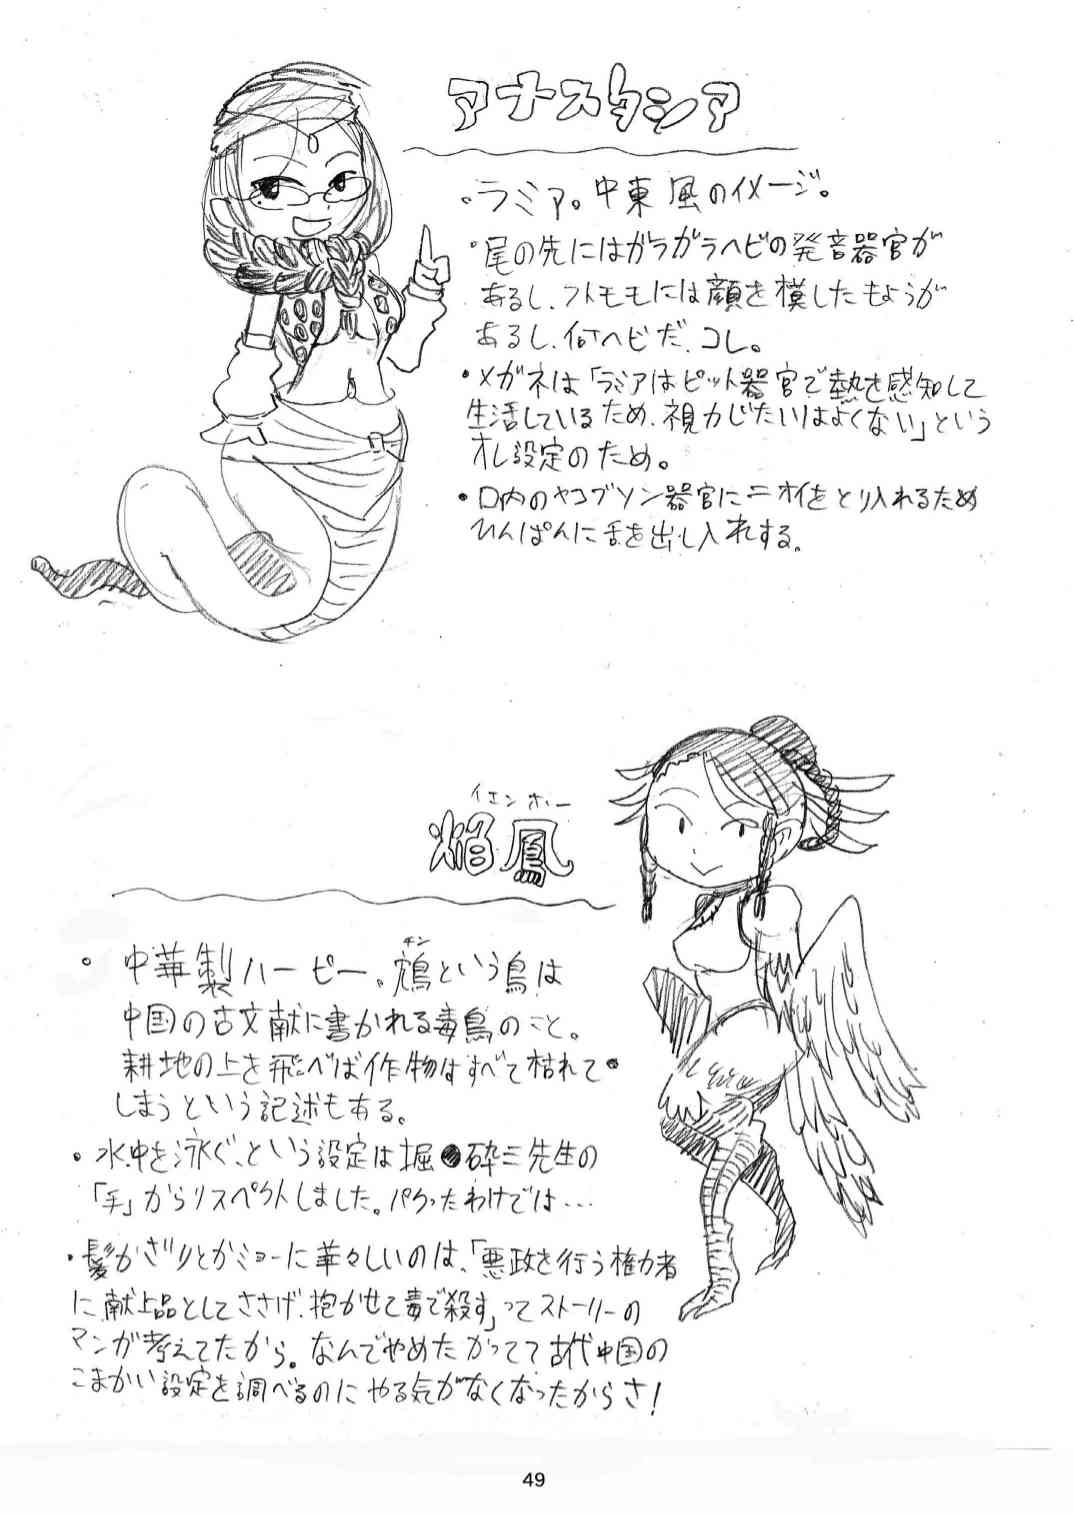 アナスタシア
・ラミア。中東風のイメージ。
・尾の先にはガラガラヘビの発音器官が
あるし、フトモモには顔を模したもようが
あるし、何ヘビだ、コレ。
・メガネは「ラミアはピット器官で熱を感知して
生活しているため、視力じたいはよくない」という
オレ設定のため。
・口内のヤコブソン器官にニオイをとり入れるため
ひんぱんに舌を出し入れする。
イエンホー
焔鳳
チン
・中華製ハーピー。鴆という鳥は
中国の古文献に書かれる毒鳥のこと。
耕地の上を飛べば作物はすべて枯れて
しまうという記述もある。
・水中を泳ぐ、という設定は掘●砕三先生の
「手」からリスペクトしました。パクったわけでは…
・髪かざりとかミョーに華々しいのは、「悪政を行う権力者
に献上品としてささげ、抱かせて毒で殺す」ってストーリーの
マンガ考えてたから。なんでやめたかってて古代中国の
こまかい設定を調べるのにやる気がなくなったからさ!
49